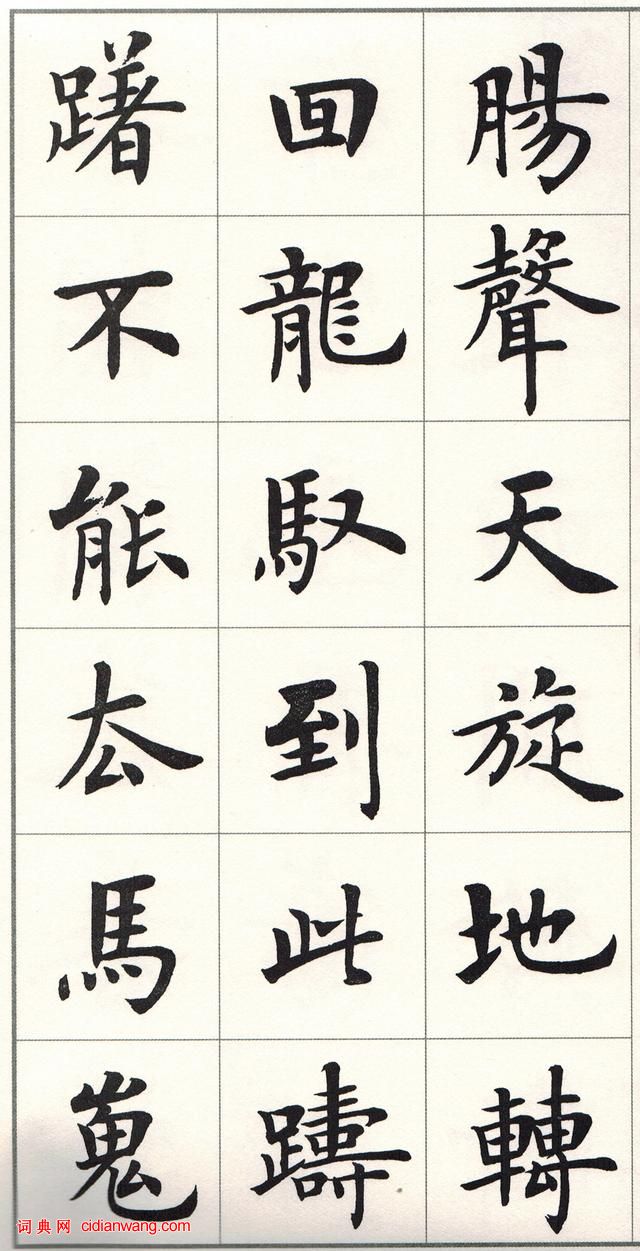 腸聲天旋地轉
回龍馭到此躊
躇不能厺馬嵬
词典网 cidianwang.com